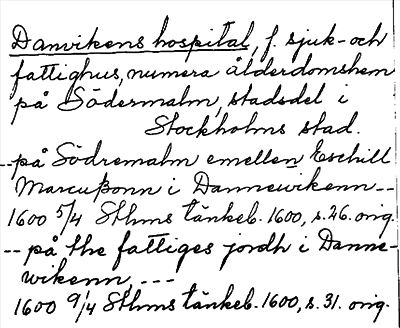 Danvikens hospital, f. sjuk- och
fattighus, numera ålderdomshem
på Södermalm, stadsdel i
Stockholms stad.
-- på Södremalm emellen Eschill
Marcußonn i Dannewikenn --
1600 5/4 Sthms tänkeb. 1600, s. 26. orig.
-- på the fattiges jordh i Danne-
wikenn, ---
1600 9/4 Sthms tänkeb. 1600, s. 31. orig.